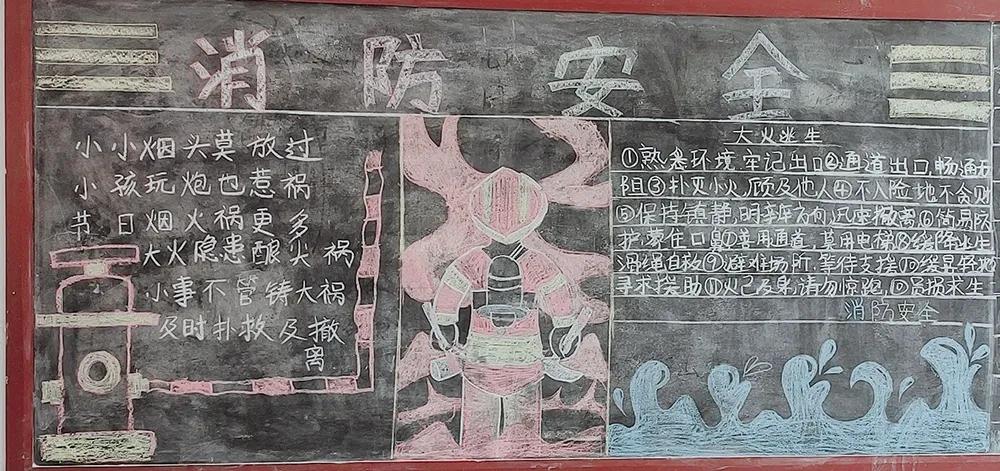 消防安全
小小烟头莫放过
小孩玩炮也惹祸
节日烟火祸更多
大火隐患酿尖祸
小事不管铸大祸
及时扑救及撤
离
大火逃生
①熟悉环境牢记出口②通道出口畅通无
阻③扑灭小火顾及他人④不入险地不贪财
⑤保持镇静,明辨方向,迅速撤离⑥简易防
护,蒙住口鼻⑦善用通道,莫用电梯⑧缓降逃生
滑绳自救⑨避难场所,等待支援⑩缓晃轻抛
寻求援助⑪火已及身,请勿惊跑,求生
消防安全